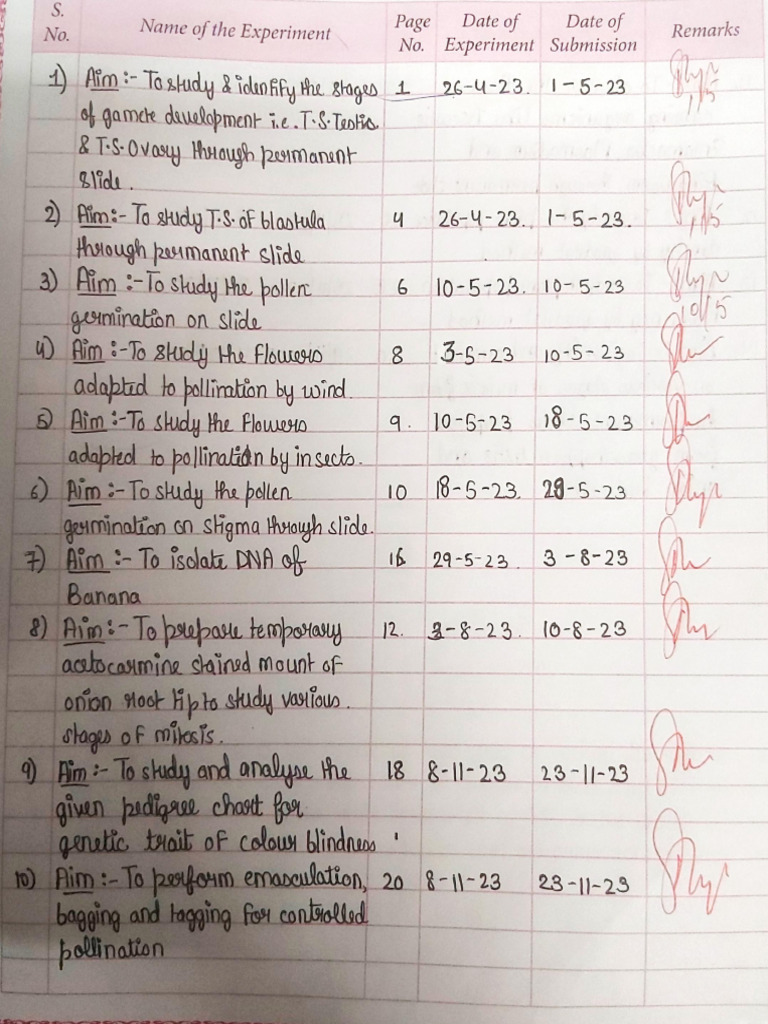 S. No. Name of the Experiment Page No. Date of Experiment Date of Submission Remarks
1) Aim :- To study & identify the stages 1 26-4-23. 1-5-23
of gamete development i.e. T.S. Testis 1/5
& T.S. Ovary through permanent
slide.
2) Aim:- To study T.S. of blastula 4 26-4-23. 1-5-23. 1/5
through permanent slide
3) Aim :- To study the pollen 6 10-5-23. 10-5-23
germination on slide 10/5
4) Aim :- To study the flowers 8 3-5-23 10-5-23
adapted to pollination by wind.
5) Aim :- To study the flowers 9. 10-5-23 18-5-23
adapted to pollination by insects.
6) Aim :- To study the pollen 10 18-5-23. 29-5-23
germination on stigma through slide.
7) Aim :- To isolate DNA of 16 29-5-23. 3-8-23
Banana
8) Aim :- To prepare temporary 12. 3-8-23. 10-8-23
acetocarmine stained mount of
onion root tip to study various.
stages of mitosis.
9) Aim :- To study and analyse the 18 8-11-23 23-11-23
given pedigree chart for
genetic trait of colour blindness
10) Aim :- To perform emasculation, 20 8-11-23 23-11-23
bagging and tagging for controlled
pollination